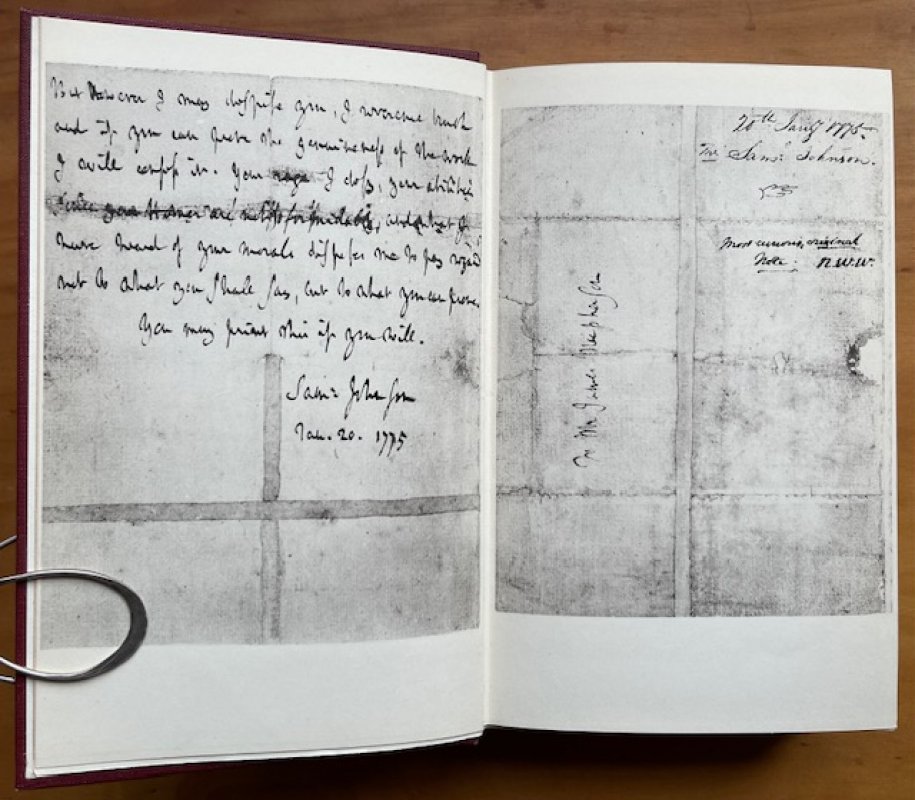 But however I may despise you, I reverence truth
and if you can prove the genuineness of the work
I will confess it. Your rage I defy, your abilities
since your Homer are not so formidable, and what I
have heard of your morals disposes me to pay regard
not to what you shall say, but to what you can prove.
You may print this if you will.
Sam: Johnson
Jan. 20. 1775
20th Jany 1775.
Saml Johnson.
Most curious, original
Note. R.W.W.
To Mr James Macpherson